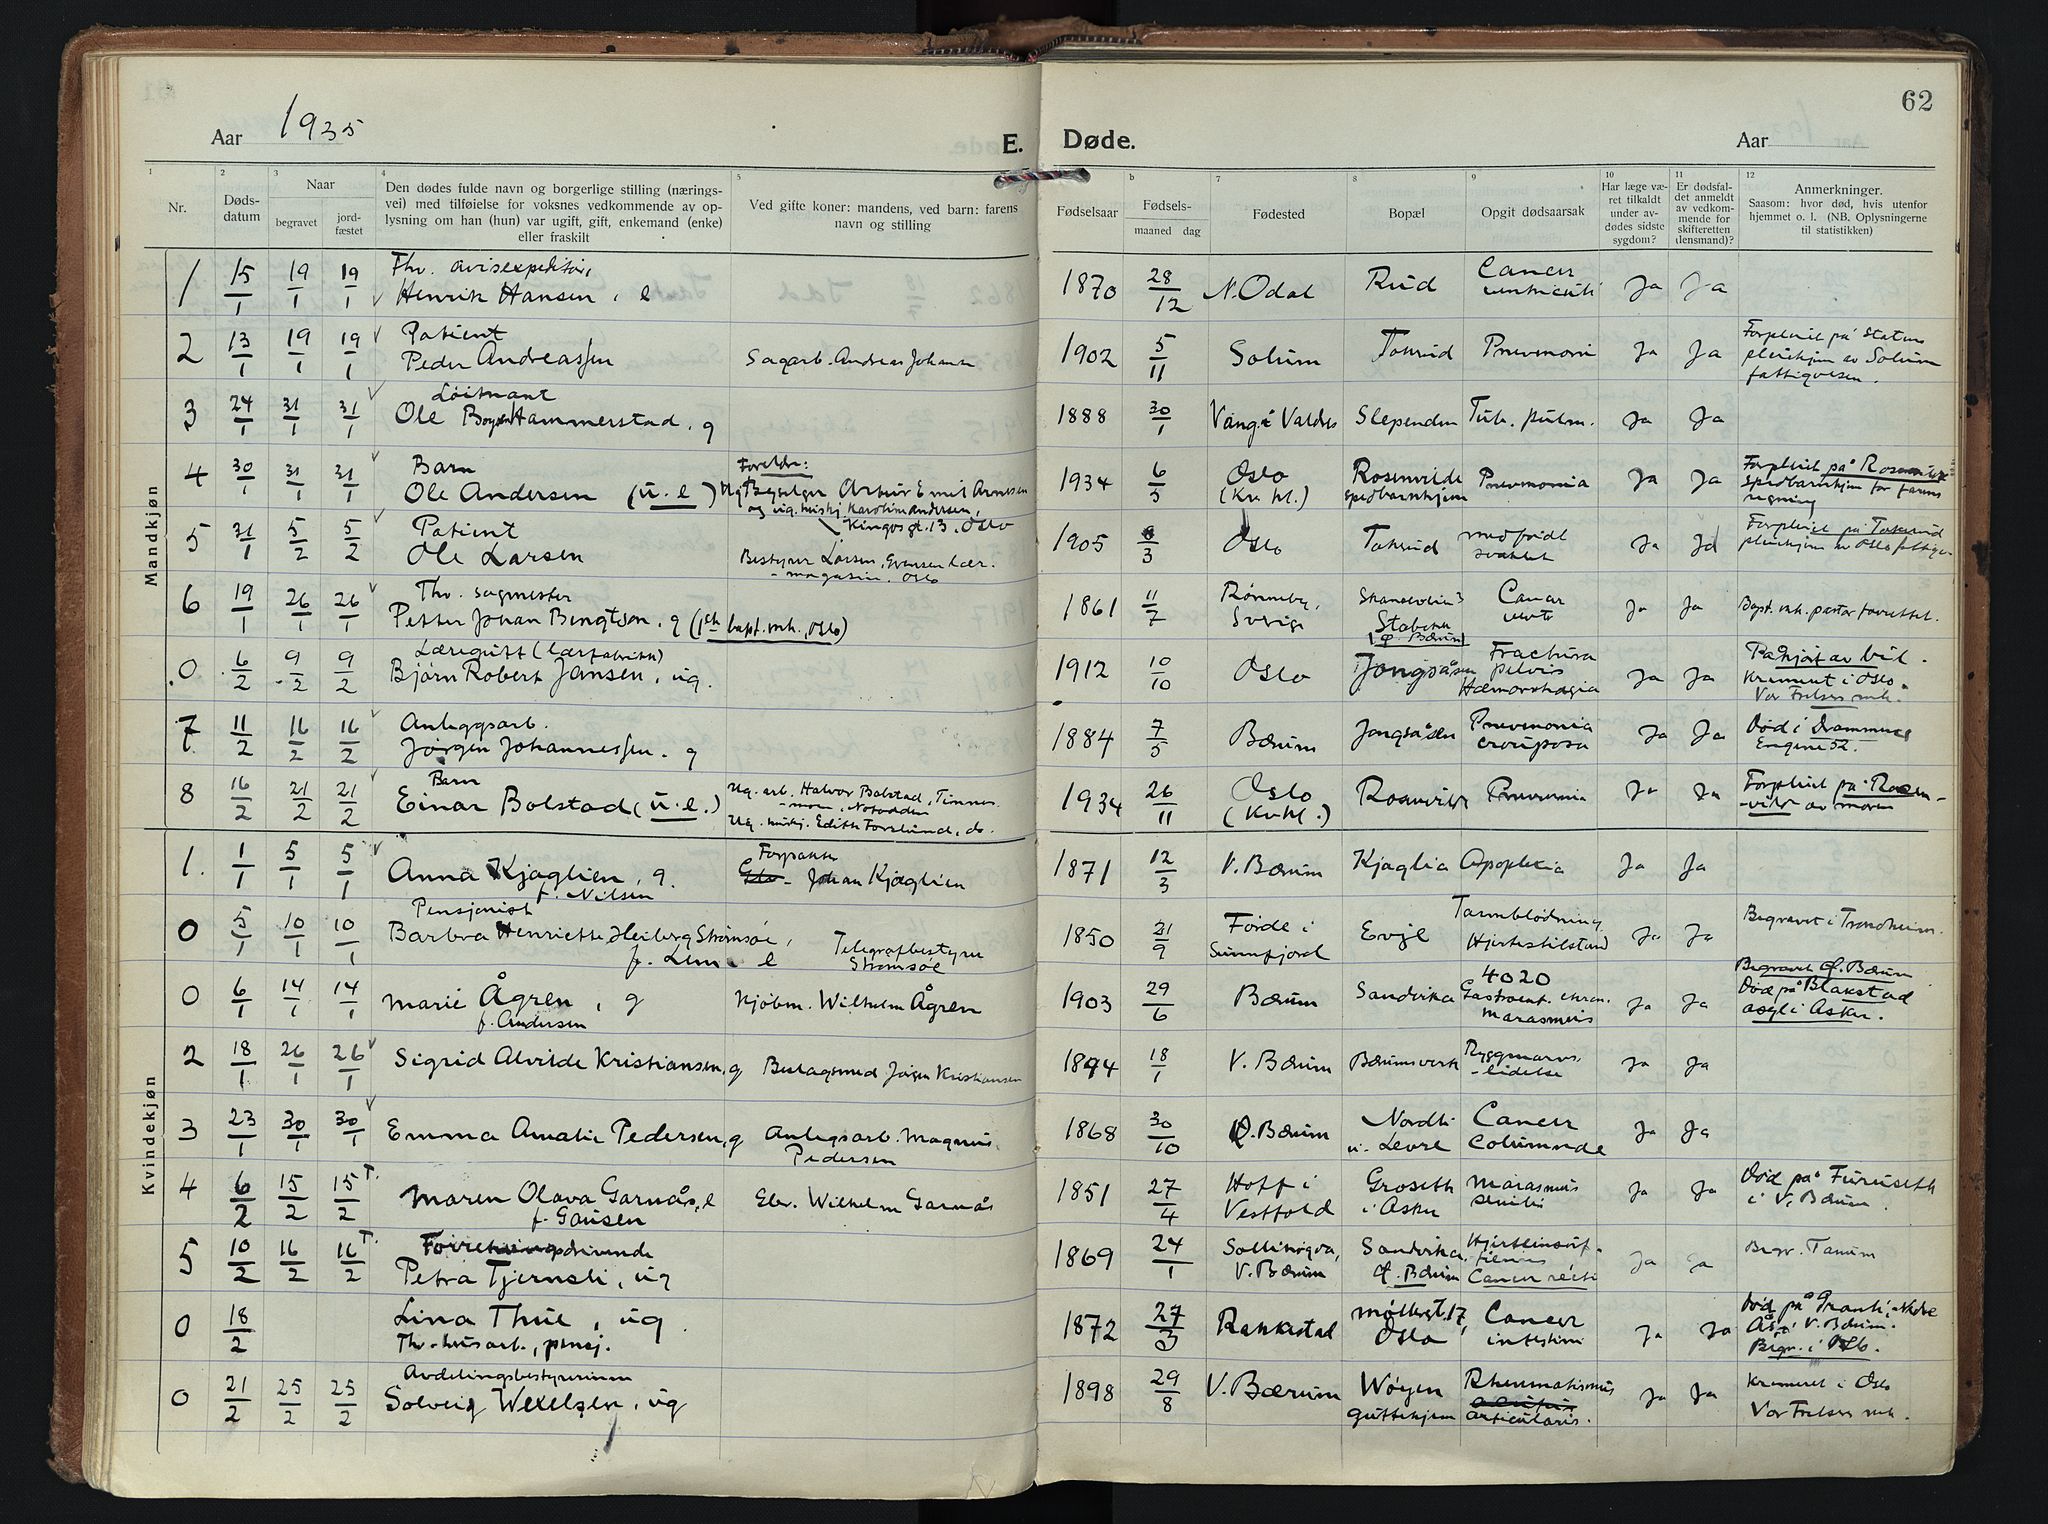 Aar 1935
E.
Døde.
Aar
62
1 2 3 4 5 b 7 8 9 10 11 12
Nr.
Døds-
datum
Naar
begravet
jord-
fæstet
Den dødes fulde navn og borgerlige stilling (nærings-
vei) med tilføielse for voksnes vedkommende av op-
lysning om han (hun) var ugift, gift, enkemand (enke)
eller fraskilt
Ved gifte koner: mandens, ved barn: farens
navn og stilling
Fødselsaar
Fødsels-
maaned dag
Fødested
Bopæl
Opgit dødsaarsak
Har læge væ-
ret tilkaldt
under av-
dødes sidste
sygdom?
Er dødsfal-
det anmeldt
av vedkom-
mende for
skifteretten
(lensmand)?
Anmerkninger.
Saasom: hvor død, hvis utenfor
hjemmet o. l. (NB. Oplysningerne
til statistikken)
Mandkjøn
1 15/1 19/1 19/1 Fhv. avisexpeditør,
Henrik Hansen, e 1870 28/12 N. Odal Rud Cancer
ventriculi Ja Ja
2 13/1 19/1 19/1 Patient
Peder Andreassen Sagarb. Andreas Johansen 1902 5/11 Solum Tokerud Pnevmoni Ja Ja Forpleiet på Statens
pleiehjem av Solum
fattigvesen.
3 24/1 31/1 31/1 Løitnant
Ole Hammerstad, g 1888 30/1 Vang i Valdres Slependen Tub. pulm. Ja Ja
4 30/1 31/1 31/1 Barn
Ole Andersen (u. e) Foreldre:
Arthur Emil Arnesen
og ug. hushj. Karoline Andersen,
Kingosgt. 13, Oslo 1934 6/5 Oslo
(Kv. kl.) Rosenvilde
spedbarnhjem Pnevmonia Ja Ja Forpleiet på Rosenvilde
spedbarnhjem for farens
regning
5 31/1 5/2 5/2 Patient
Ole Larsen Bestyrer Larsen, Grensen lær-
-magasin, Oslo 1905 /3 Oslo Tokerud medfødt
svakhet Ja Ja Forpleiet på Tokerud
pleiehjem av Oslo fattigv.
6 19/1 26/1 26/1 Fhv. sagmester
Petter Johan Bengtson, g (1ste bapt. mh., Oslo) 1861 11/7 Rønneby,
Sverige
Stabekk
(Ø. Bærum) Cancer
ventr. Ja Ja Bapt. mh. pastor forrettet.
0 6/2 9/2 9/2 Læregutt (lærfabrikk)
Bjørn Robert Jansen, ug. 1912 10/10 Oslo Jongsåsen Fractura
pelvis
Hæmorrhagia Ja Ja Påkjørt av bil.
Kremert i Oslo.
Vor Frelsers mh.
7 11/2 16/2 16/2 Anleggsarb.
Jørgen Johannessen. g 1884 7/5 Bærum Jongsåsen Pnevmonia
crouposa Ja Ja Død i Drammen
Engene 52.
8 16/2 21/2 21/2 Barn
Einar Bolstad (u. e.) Ug. arb. Halvor Bolstad, Tinnes-
-moen, Notodden
Ug. hushj. Edith Forslund, do. 1934 26/11 Oslo
(Kv. kl.) Rosenvilde Pnevmonia Ja Ja Forpleiet på Rosen-
-vilde av moren
Kvindekjøn
1. 1/1 5/1 5/1 Anna Kjaglien, g.
f. Nilsen Forpakter
Johan Kjaglien 1871 12/3 V. Bærum Kjaglia Apoplexia Ja Ja
0 5/1 10/1 10/1 Pensjonist
Barbra Henriette Heiberg Strømsøe,
f. Lem e Telegrafbestyrer
Strømsøe 1850 21/9 Førde i
Sunnfjord Evje Tarmblødning,
Hjertestilstand Ja Ja Begravet i Trondheim.
0 6/1 14/1 14/1 Marie Ågren, g
f. Andersen Kjøbm. Wilhelm Ågren 1903 29/6 Bærum Sandvika 4020
Gastroent. chron.
Marasmus Ja Ja Begravet Ø. Bærum
Død på Blakstad
asyl i Asker.
2 18/1 26/1 26/1 Sigrid Alvilde Kristiansen, g Beslagsmed Jørgen Kristiansen 1894 18/1 V. Bærum Bærumsverk Ryggmarvs-
-lidelse Ja Ja
3 23/1 30/1 30/1 Emma Amalie Pedersen, g Anlegsarb. Magnus
Pedersen 1868 30/10 Ø. Bærum Nordli
u. Levre Cancer
columnae Ja Ja
4 6/2 15/2 15/2 T. Maren Olava Garnås, e
f. Gausen Elev. Wilhelm Garnås 1851 27/4 Hoff i
Vestfold Groseth
i Asker Marasmus
senilis Ja Ja Død på Furuseth
i V. Bærum.
5 10/2 16/2 16/2 T. Forretningsdrivende
Petra Tjernsli, ug 1869 24/1 Sollihøgda,
V. Bærum Sandvika,
Ø. Bærum Hjerteinsuf-
ficiens
Cancer recti Ja Ja Begr. Tanum
0 18/2 Lina Thue, ug.
Fhv. husarb., pensj. 1872 27/3 Rakkestad Møllergt. 17,
Oslo Cancer
intestini Ja Ja Død på
V. Bærum.
Begr. i Oslo.
0 21/2 25/2 25/2 Avdelingsbestyrerinne
Solveig Wexelsen, ug 1898 29/8 V. Bærum Wøyen
guttehjem Rheumatismus
articularis. Ja Ja Kremert i Oslo
Vor Frelsers mh.